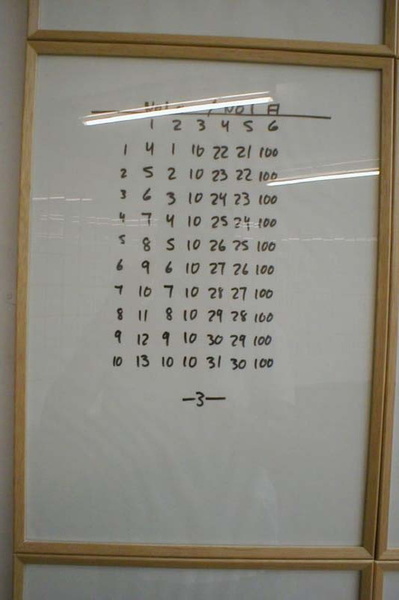 1 2 3 4 5 6
1 4 1 10 22 21 100
2 5 2 10 23 22 100
3 6 3 10 24 23 100
4 7 4 10 25 24 100
5 8 5 10 26 25 100
6 9 6 10 27 26 100
7 10 7 10 28 27 100
8 11 8 10 29 28 100
9 12 9 10 30 29 100
10 13 10 10 31 30 100
—3—